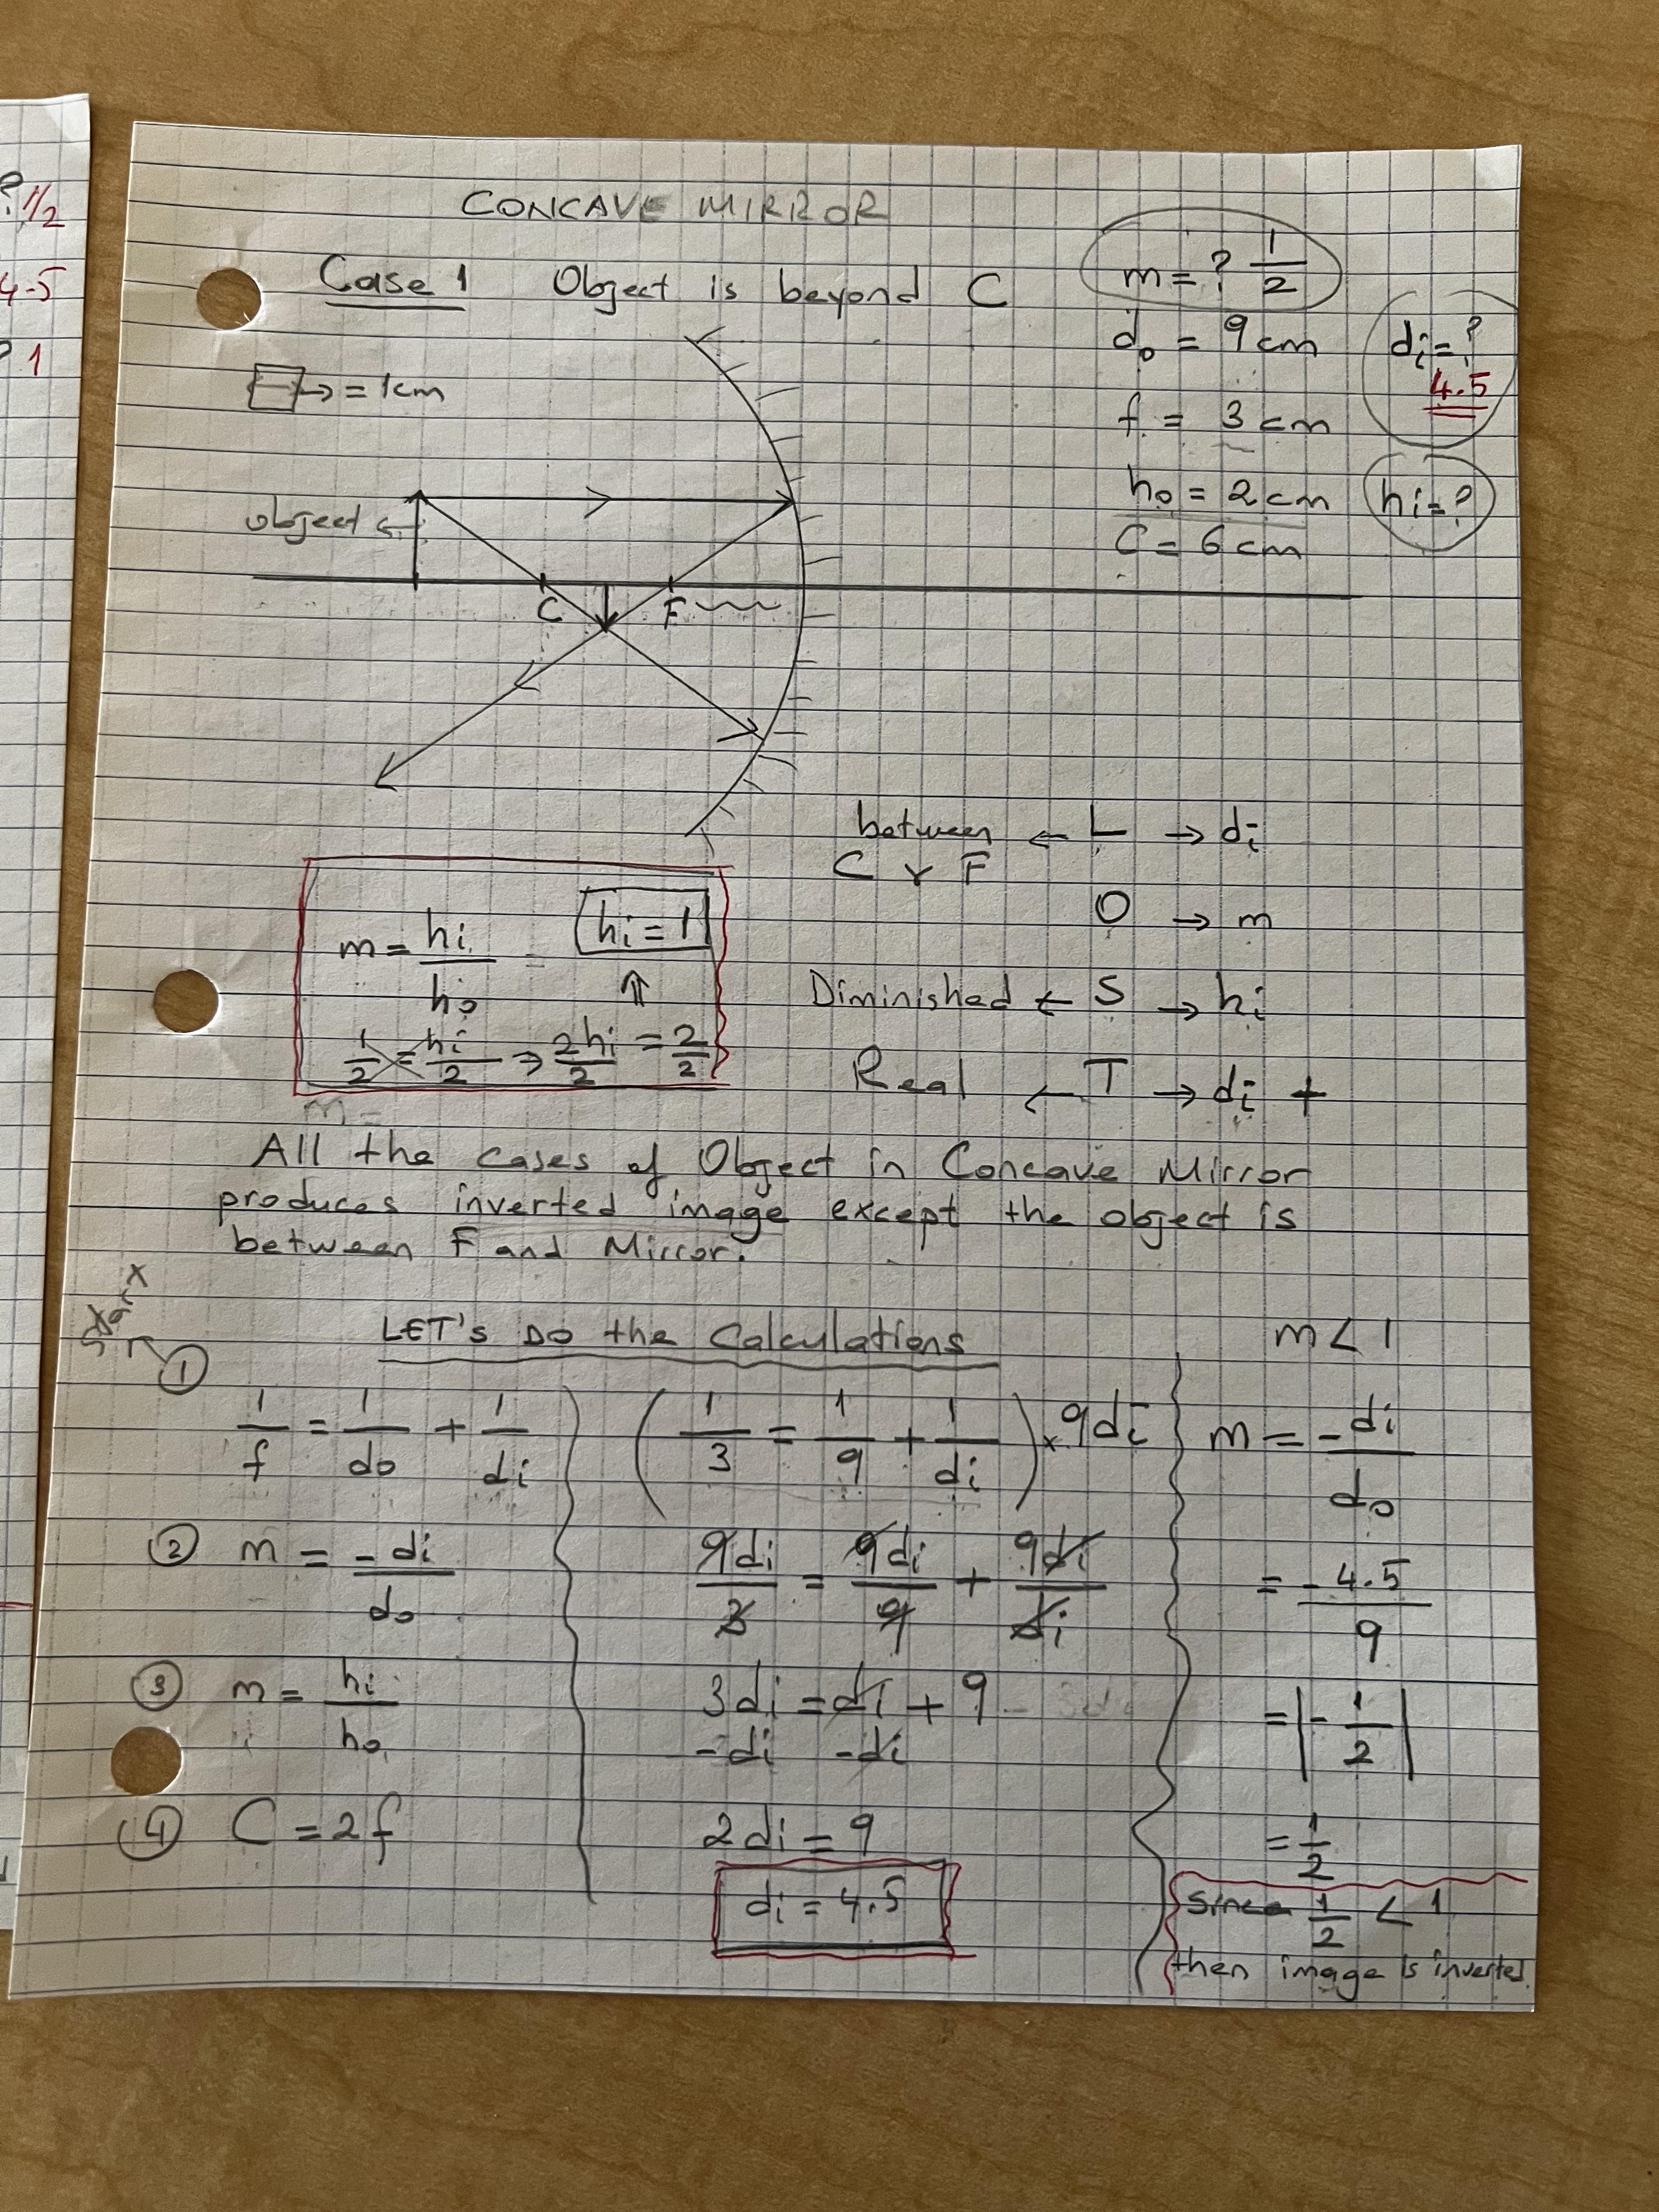 ? 1/2
4.5
? 1
CONCAVE MIRROR
Case 1 Object is beyond C
m = ? 1/2
do = 9cm
di = ?
4.5
f = 3cm
ho = 2cm
hi = ?
C = 6cm
→ = 1cm
object ←
C F
between ← L → di
C & F
O → m
Diminished ← S → hi
Real ← T → di +
m = hi/ho =
hi = 1
⇑
1/2 = hi/2 ⇒ 2hi/2 = 2/2
m =
All the cases of Object in Concave Mirror
produces inverted image except the object is
between F and Mirror.
Start
LET's Do the Calculations
① 1/f = 1/do + 1/di
② m = -di/do
③ m = hi/ho
④ C = 2f
(1/3 = 1/9 + 1/di) × 9di
9di/3 = 9di/9 + 9di/di
3di = di + 9
-di -di
2di = 9
di = 4.5
m < 1
m = -di/do
= -4.5/9
= |-1/2|
= 1/2
Since 1/2 < 1
then image is inverted.